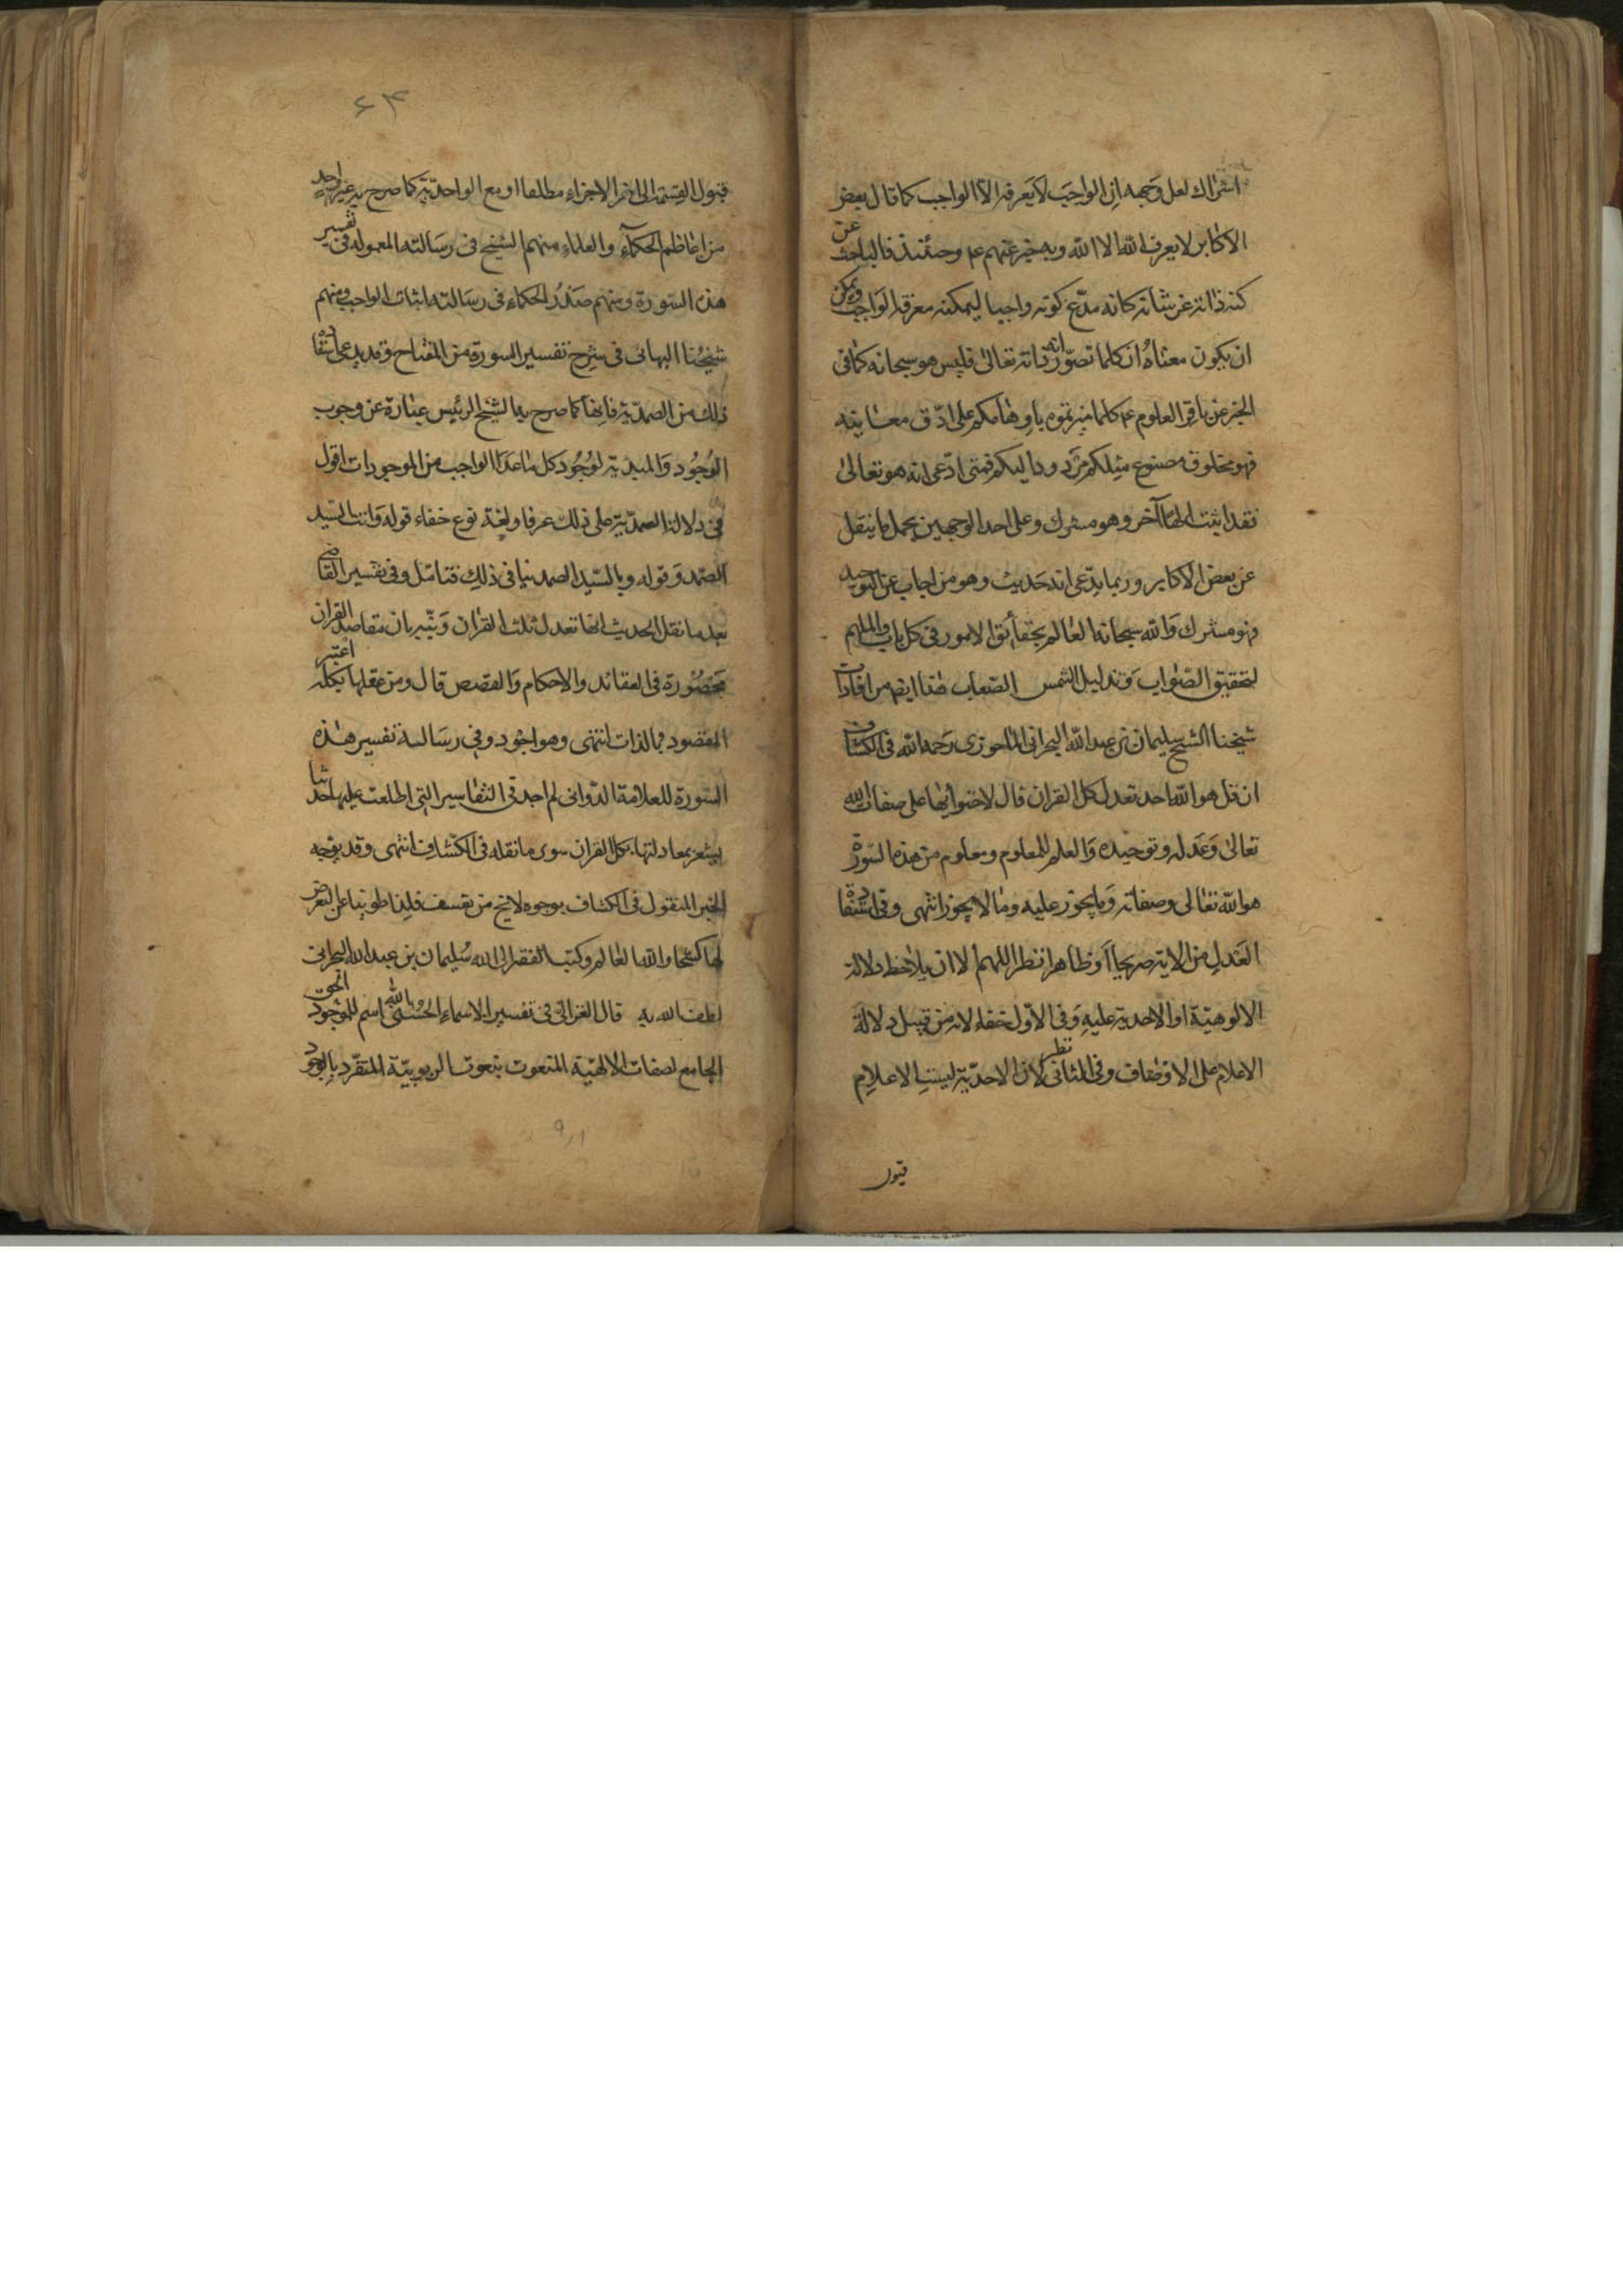 اشراك لعل وجهه ان الواجب لا يعرفه الا الواجب كما قال بعض
الاكابر لا يعرف الله الا الله وبه خبر عنهم ع وحينئذ فالباحث عن
كنه ذاته عن شانه كانه مدّع كونه واجبا ليمكنه معرفة الواجب ويمكن
ان يكون معناه ان كلما تصوّر انه ذاته تعالى فليس هو سبحانه كما في
الخبر عن باقر العلوم ع كلما ميزتموه باوهامكم على ادق معانيه
فهو مخلوق مصنوع مثلكم مردود اليكم فمتى ادعى انه هو تعالى
فقد اثبت الها آخر وهو مشرك وعلى احد الوجهين يحمل ما ينقل
عن بعض الاكابر وربما يدّعى انه حديث وهو من اجاب عن التوحيد
فهو مشرك والله سبحانه العالم بحقائق الامور في كل باب والملهم
لتحقيق الصواب وتذليل الشمس الصعاب هذا ايضا من افادات
شيخنا الشيخ سليمان بن عبد الله البحراني الماحوزي رحمه الله في الكشاف
ان قل هو الله احد تعدل كل القران قال لاحتوائها على صفات الله
تعالى وعدله وتوحيده والعلم للمعلوم ومعلوم من هذه السورة
هو الله تعالى وصفاته وما يجوز عليه وما لا يجوز انتهى وفي استفادة
العدل من الاية صريحا او ظاهرا نظر اللهم الا ان يلاحظ دلالة
الالوهية او الاحدية عليه وفي الاول خفاء لانه من قبيل دلالة
الاعلام على الاوصاف وفي الثاني نظر لان الاحدية ليست الا عدم
قبول
۶۴
قبول القسمة الى اخر الاجزاء مطلقا او مع الواحدية كما صرح به غير واحد
من اعاظم الحكماء والعلماء منهم الشيخ في رسالته المعمولة في تفسير
هذه السورة ومنهم صدر الحكماء في رسالته اثبات الواجب ومنهم
شيخنا البهائي في شرح تفسير السورة من المفتاح وقد يدعى استفادة
ذلك من الصمدية فانها كما صرح به الشيخ الرئيس عبارة عن وجوب
الوجود والمبدئية لوجود كل ما عدا الواجب من الموجودات اقول
في دلالة الصمدية على ذلك عرفا ولغة نوع خفاء قوله وانت السيد
الصمد وقوله وبالسيد الصمد ينافي ذلك فتامل وفي تفسير القاضي
بعد ما نقل الحديث انها تعدل ثلث القران وبيّنه بان مقاصد القران
محصورة في العقائد والاحكام والقصص قال ومن عدلها بكله اعتبر
المقصود بالذات انتهى وهو اجود وفي رسالة تفسير هذه
السورة للعلامة الدواني لم اجد في التفاسير التي اطلعت عليها حديثا
يشعر بمعادلتها بكل القران سوى ما نقله في الكشاف انتهى وقد يوجه
الخبر المنقول في الكشاف بوجوه لا تخ من تعسف فلذا طوينا عن التعرض
لها كشحا والله العالم وكتب الفقير الى الله سليمان بن عبد الله البحراني
لطف الله به قال الغزالي في تفسير الاسماء الحسنى الله اسم للموجود الحق
الجامع لصفات الالهية المنعوت بنعوت الربوبية المتفرد بالوجود